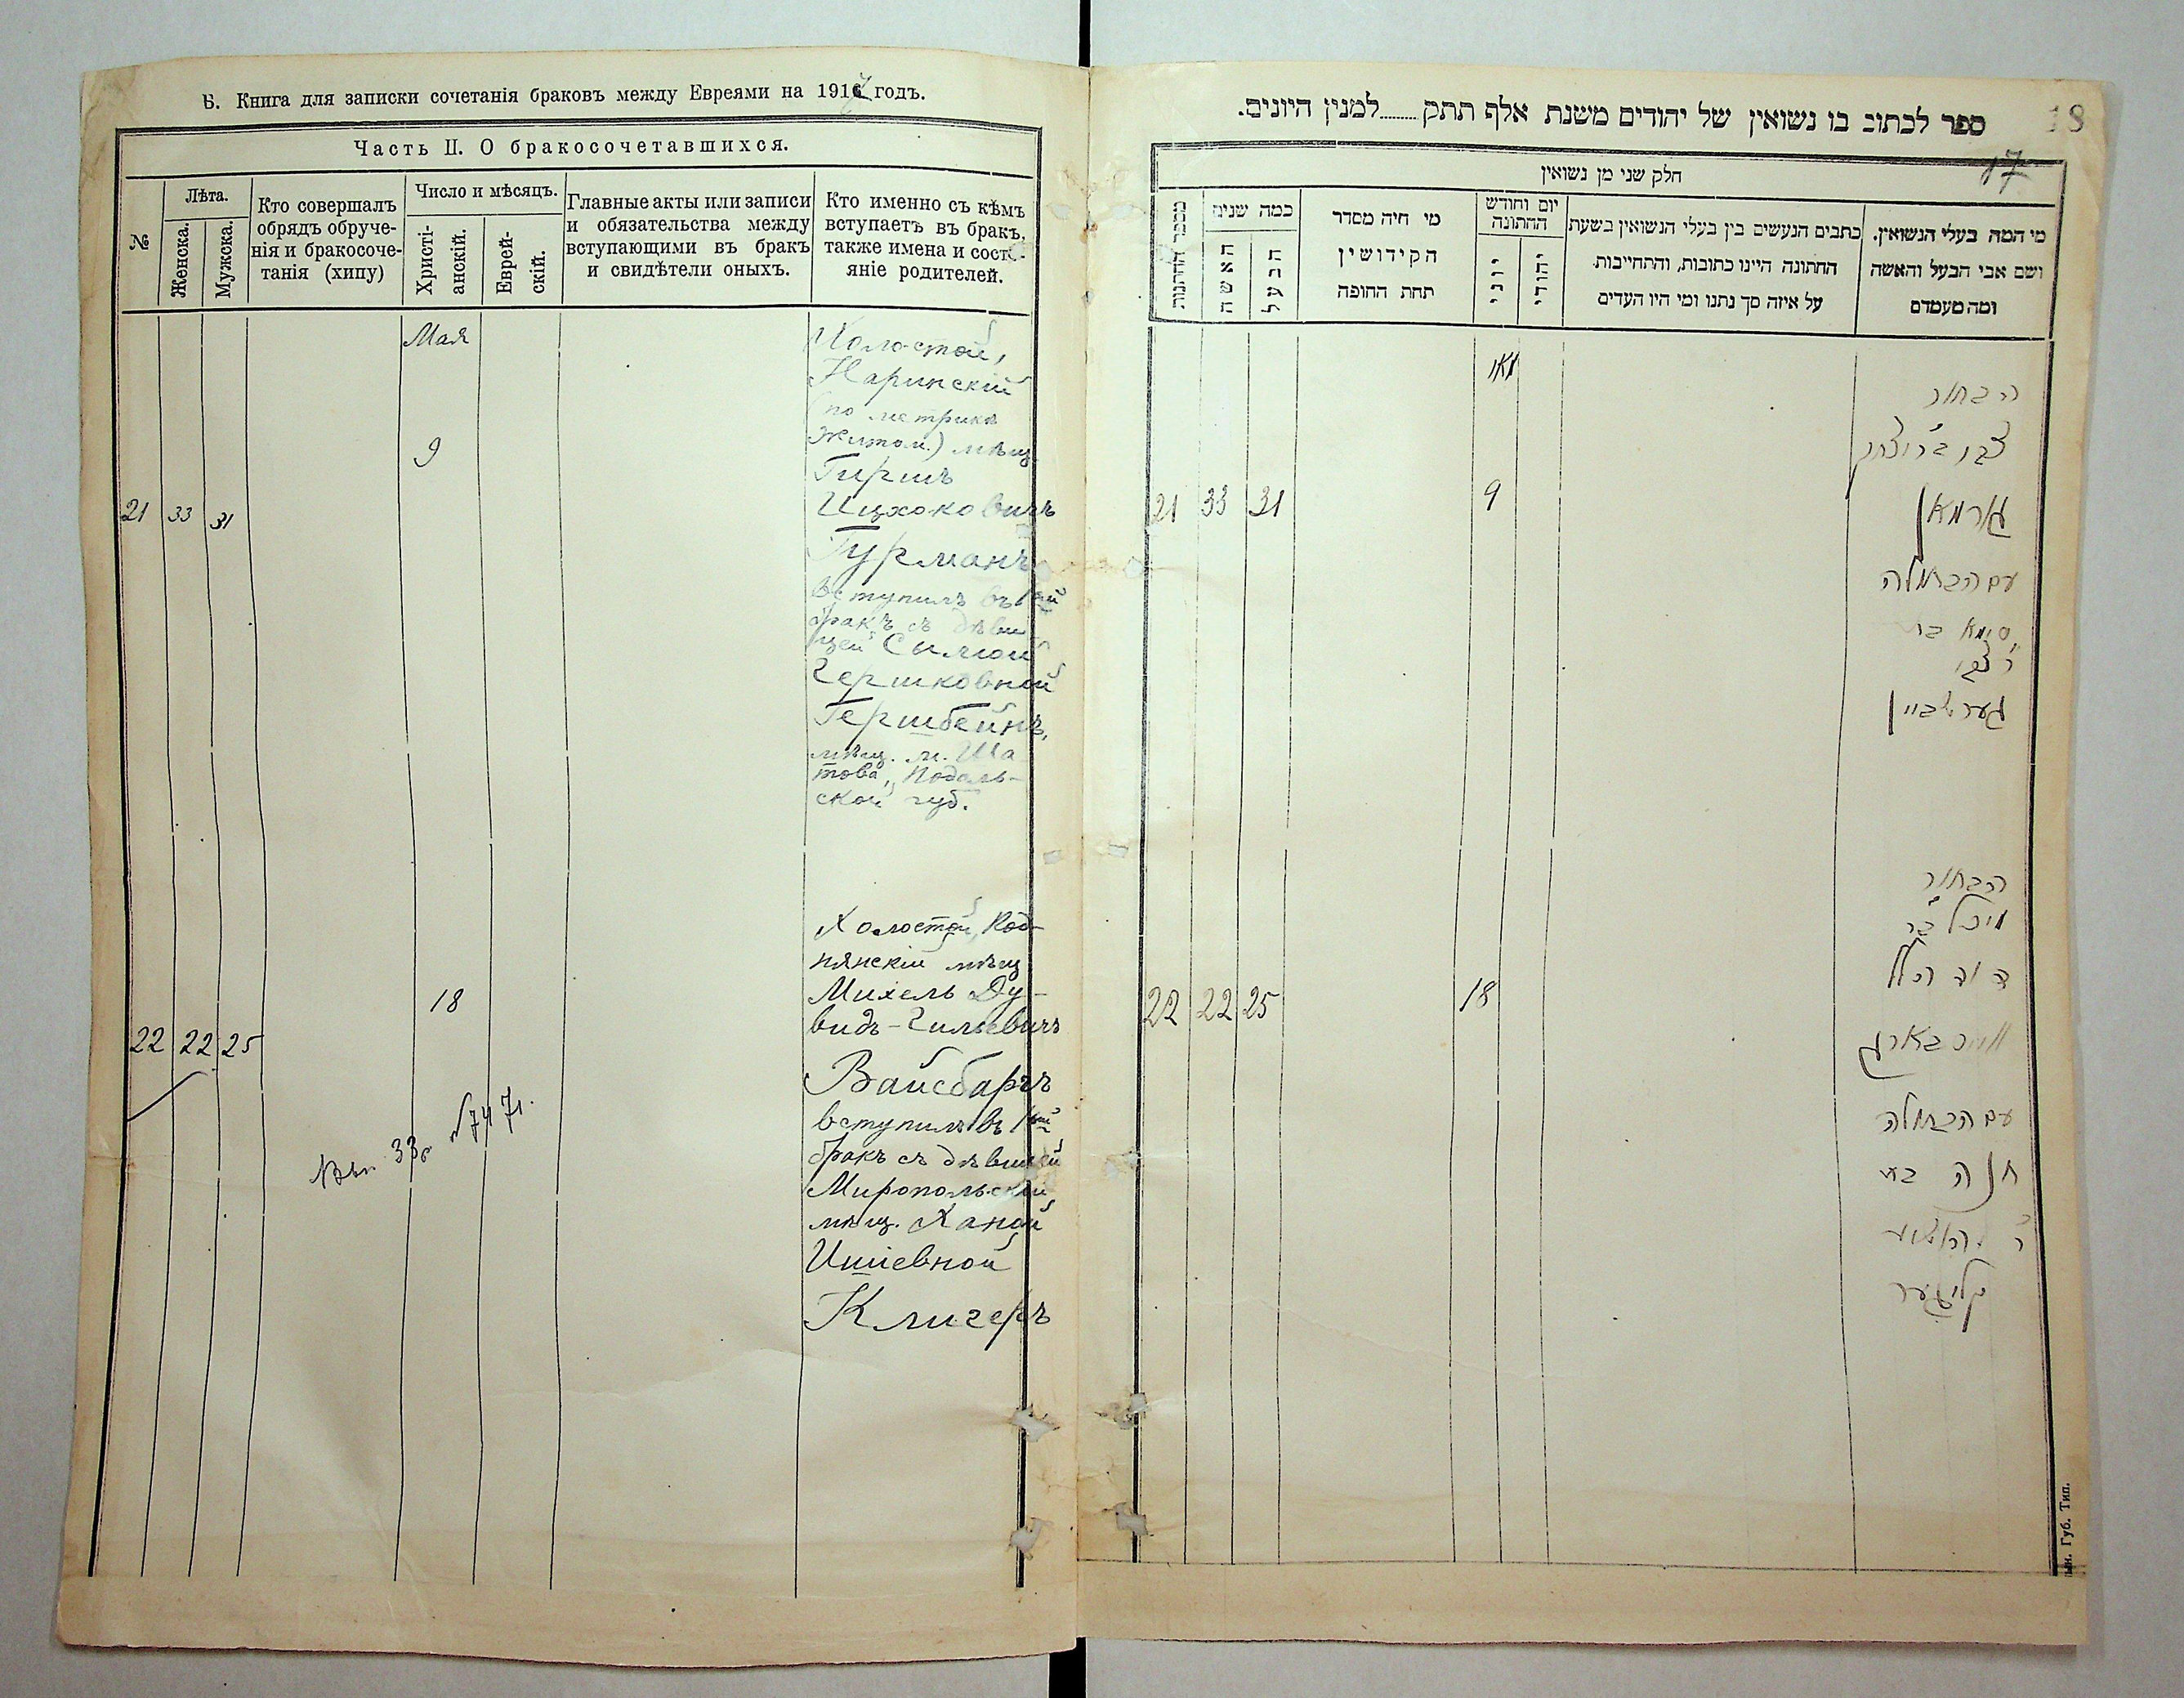 Б. Книга для записки сочетанія браковъ между Евреями на 1917 годъ.
Часть II. О бракосочетавшихся.
№
Лѣта.
Женска.
Мужска.
Кто совершалъ
обрядъ обруче-
нія и бракосоче-
танія (хипу)
Число и мѣсяцъ.
Христі-
анскій.
Еврей-
скій.
Главные акты или записи
и обязательства между
вступающими въ бракъ
и свидѣтели оныхъ.
Кто именно съ кѣмъ
вступаетъ въ бракъ,
также имена и состо-
яніе родителей.
Мая
9
21 33 31
Холостой,
Наринскій
(по метрикѣ
Житом.) мѣщ.
Гиршъ
Ицхоковичъ
Гурманъ
вступилъ въ 1ый
бракъ съ дѣви-
цей Сымой
Гершковной
Гершбейнъ,
мѣщ. м. Ша
това, Подоль-
ской губ.
18
22 22 25
Холостой, Код-
нянскій мѣщ
Михель Ду-
видъ-Гилевичъ
Вайсбаргъ
вступилъ въ 1ый
бракъ съ дѣвицей
Миропольской
мѣщ. Ханой
Ишіевной
Клигеръ
18
17
ספר לכתוב בו נשואין של יהודים משנת אלף תתק........למנין היונים.
חלק שני מן נשואין
מספר החתונות
כמה שנים
האשה
הבעל
מי היה מסדר
הקידושין
תחת החופה
יום וחודש
החתונה
יוני
יהודי
כתבים הנעשים בין בעלי הנשואין בשעת
החתונה היינו כתובות, והתחייבות
על איזה סך נתנו ומי היו העדים
מי המה בעלי הנשואין.
ושם אבי הבעל והאשה
ומה מעמדם
מאי
21 33 31
9
הבחור
צבי ב״ר יצחק
גורמאן
עם הבתולה
סימא בת
ר׳ צבי
גערשביין
22 22 25
18
הבחור
מיכל בר
דוד הלל
ווייסבארג
עם הבתולה
חנה בת
ר׳ יהושע
קליגער
Губ. Тип.